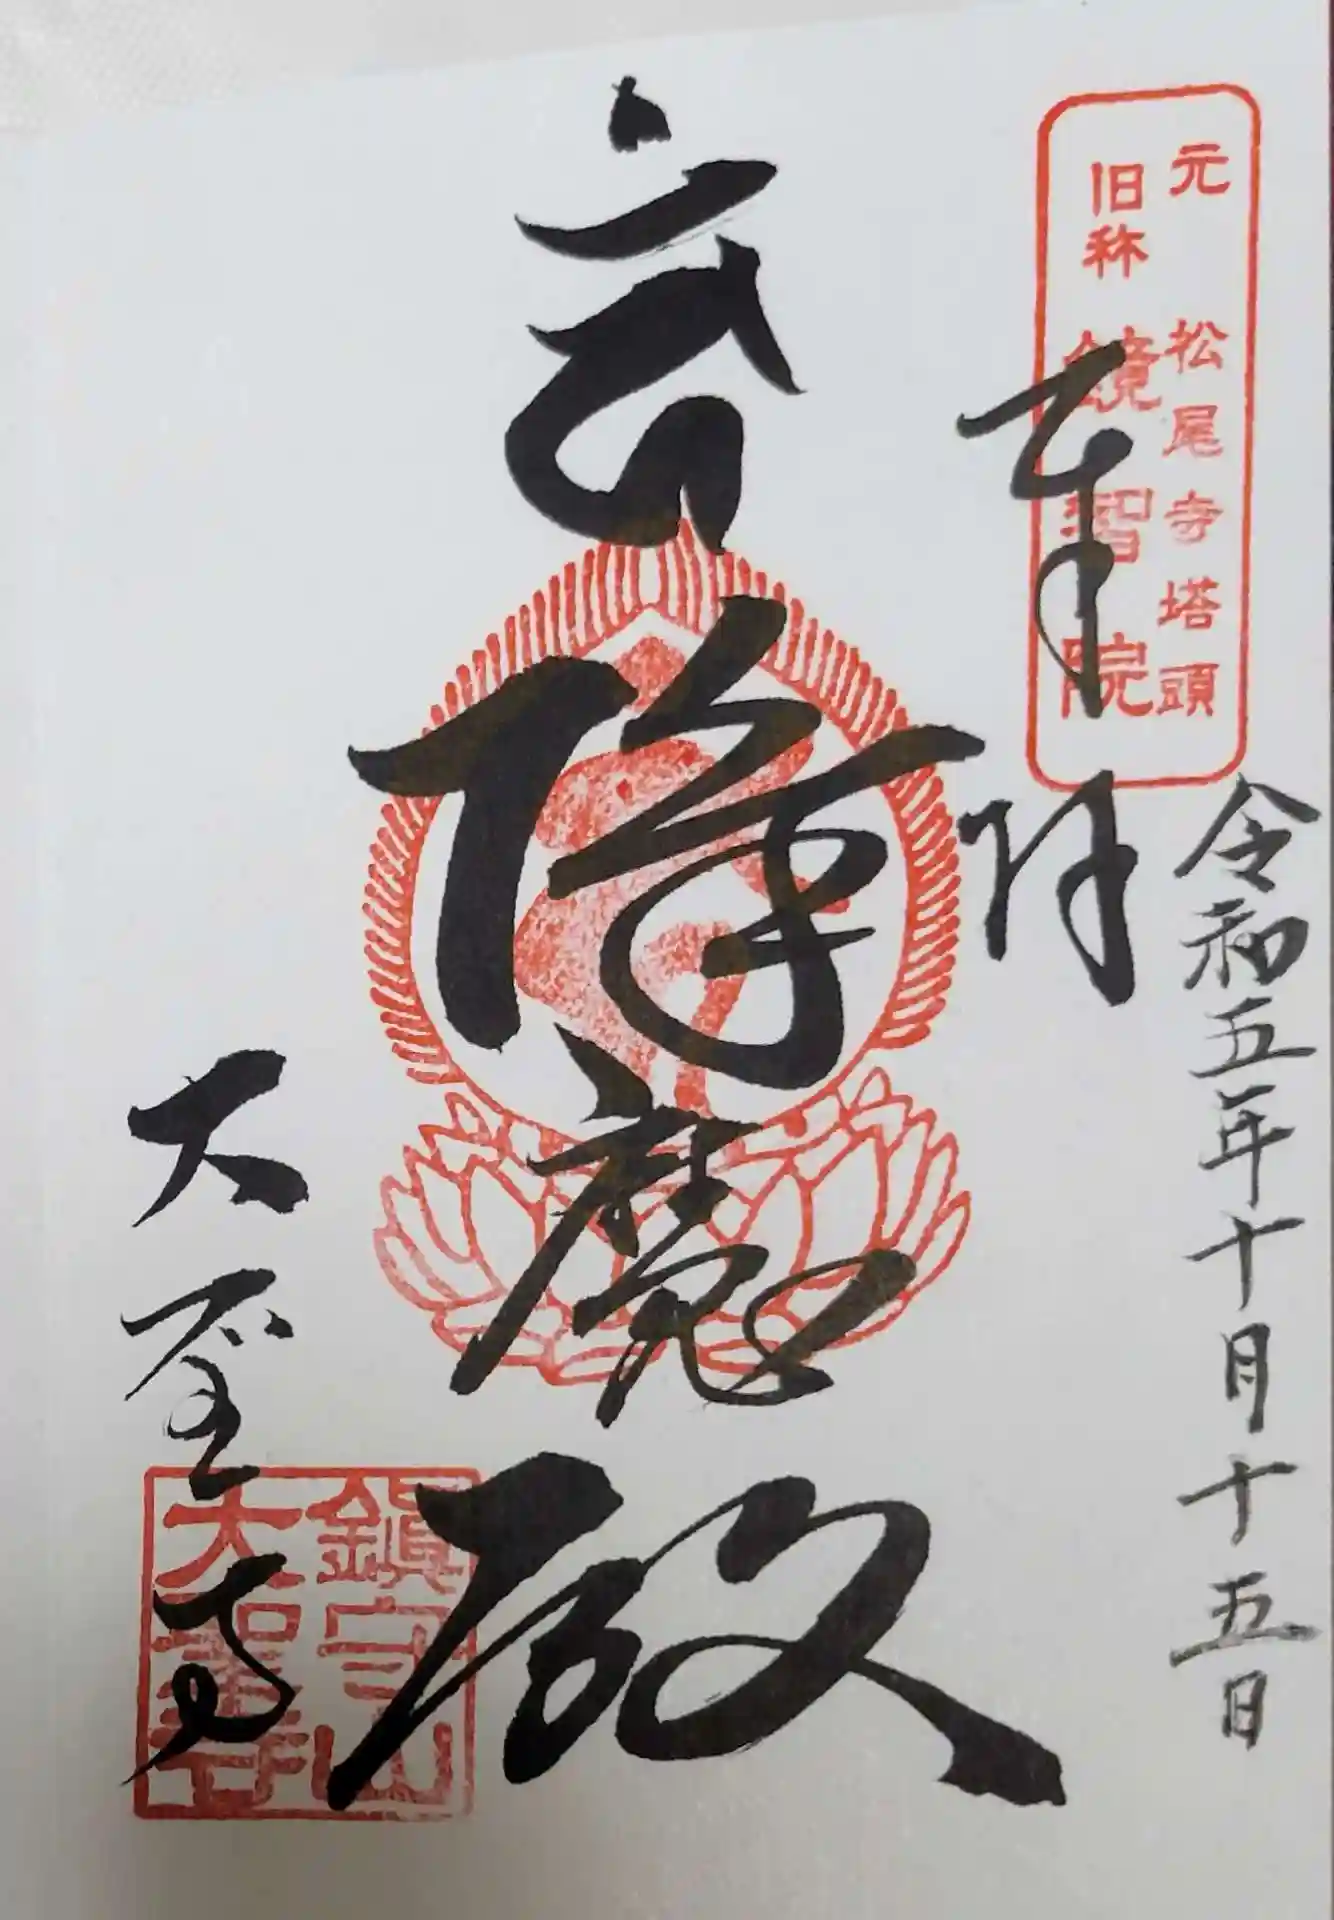 元 松尾寺塔頭
旧称 鏡智院
令和五年十月十五日
奉拝
降魔殿
大聖寺
鎮守山
大聖寺